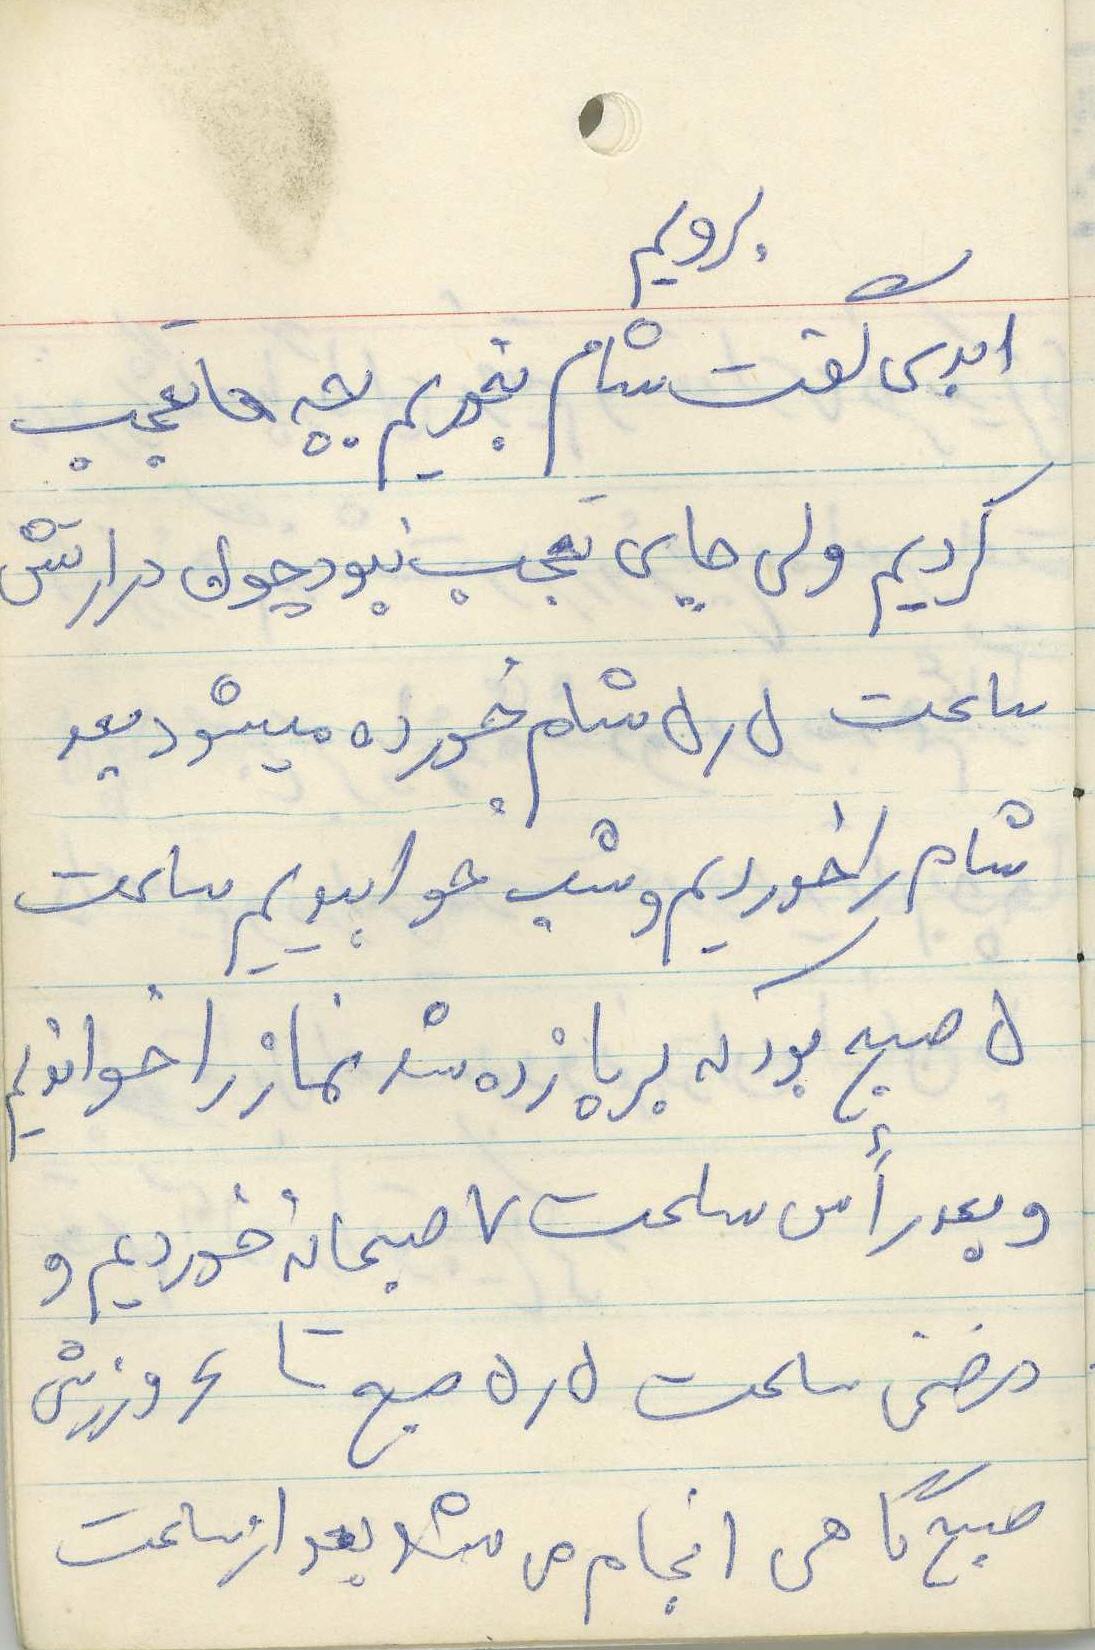 برویم
ابدی گفت شام بخوریم بچه ها تعجب
کردیم ولی جای تعجب نبود چون در ارتش
ساعت ۵ر۵ شام خورده میشود بعد
شام را خوردیم و شب خوابیدیم ساعت
۵ صبح بود که برپا زده شد نماز را خواندیم
و بعد رأس ساعت ۷ صبحانه خوردیم و
درضمن ساعت ۵ر۵ صبح تا ۶ ورزش
صبح گاهی انجام می شد بعد از ساعت